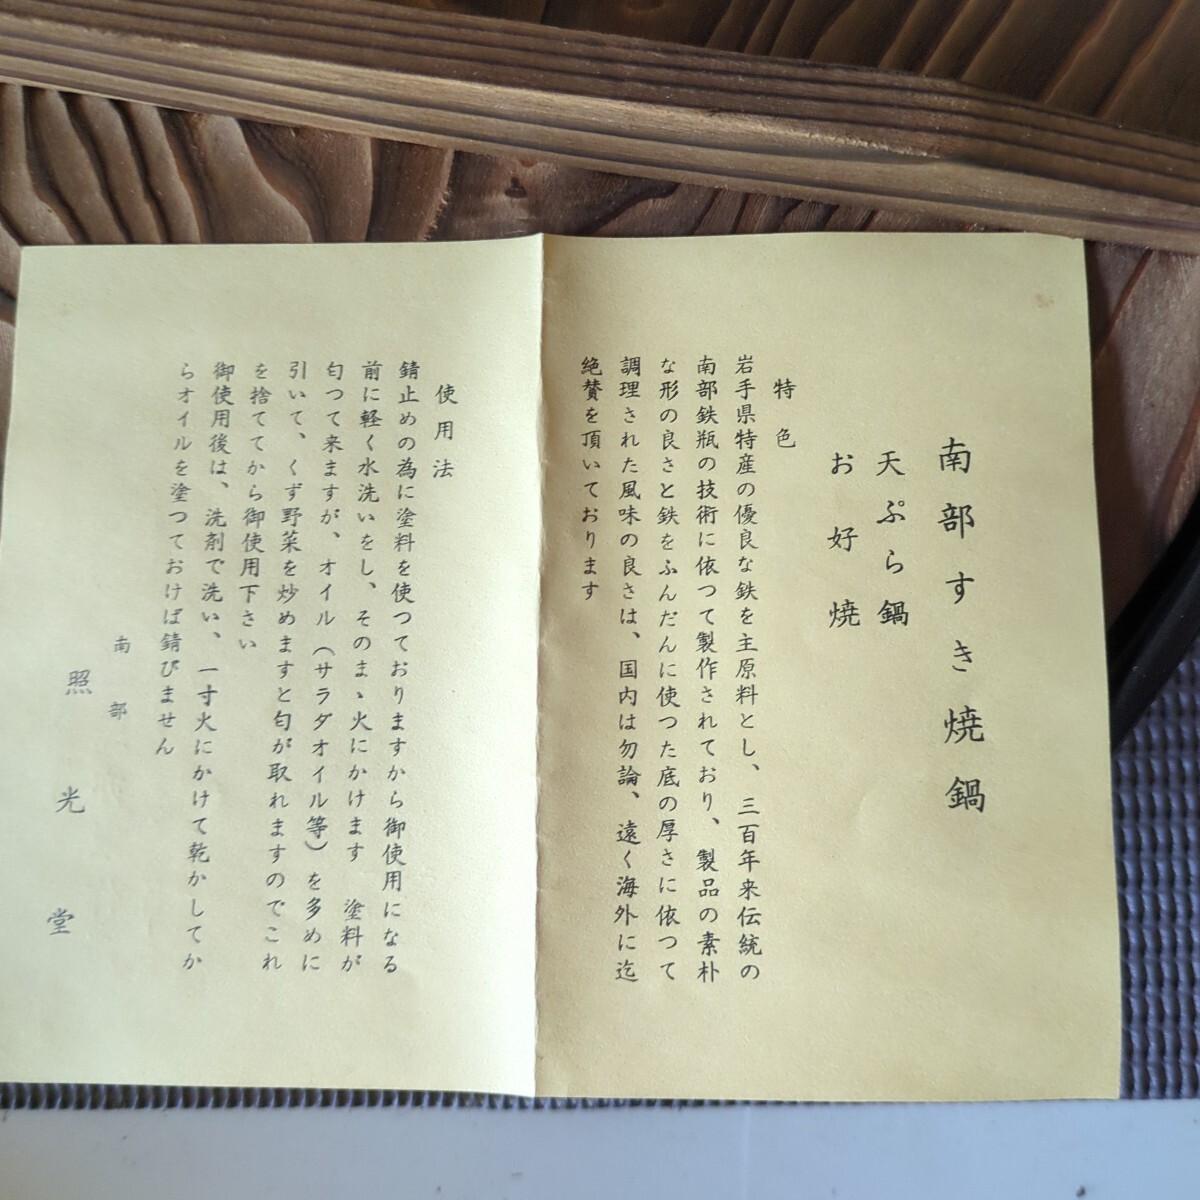 南部すき焼鍋
天ぷら鍋
お好焼
特色
岩手県特産の優良な鉄を主原料とし、三百年来伝統の
南部鉄瓶の技術に依つて製作されており、製品の素朴
な形の良さと鉄をふんだんに使つた底の厚さに依つて
調理された風味の良さは、国内は勿論、遠く海外に迄
絶賛を頂いております
使用法
錆止めの為に塗料を使つておりますから御使用になる
前に軽く水洗いをし、そのまゝ火にかけます　塗料が
匂つて来ますが、オイル（サラダオイル等）を多めに
引いて、くず野菜を炒めますと匂が取れますのでこれ
を捨ててから御使用下さい
御使用後は、洗剤で洗い、一寸火にかけて乾かしてか
らオイルを塗つておけば錆びません
南部
照光堂